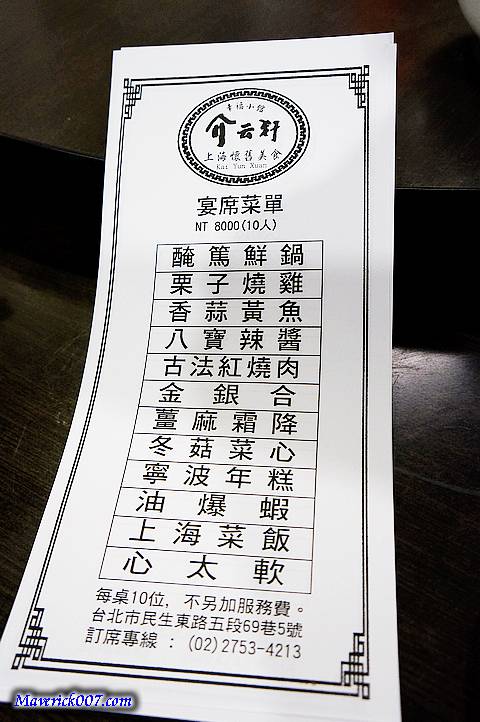 幸福小館
介云軒
上海懷舊美食
Kai Yun Xuan
宴席菜單
NT 8000(10人)
醃篤鮮鍋
栗子燒雞
香蒜黃魚
八寶辣醬
古法紅燒肉
金銀合
薑麻霜降
冬菇菜心
寧波年糕
油爆蝦
上海菜飯
心太軟
每桌10位，不另加服務費。
台北市民生東路五段69巷5號
訂席專線：(02)2753-4213
Maverick007.com